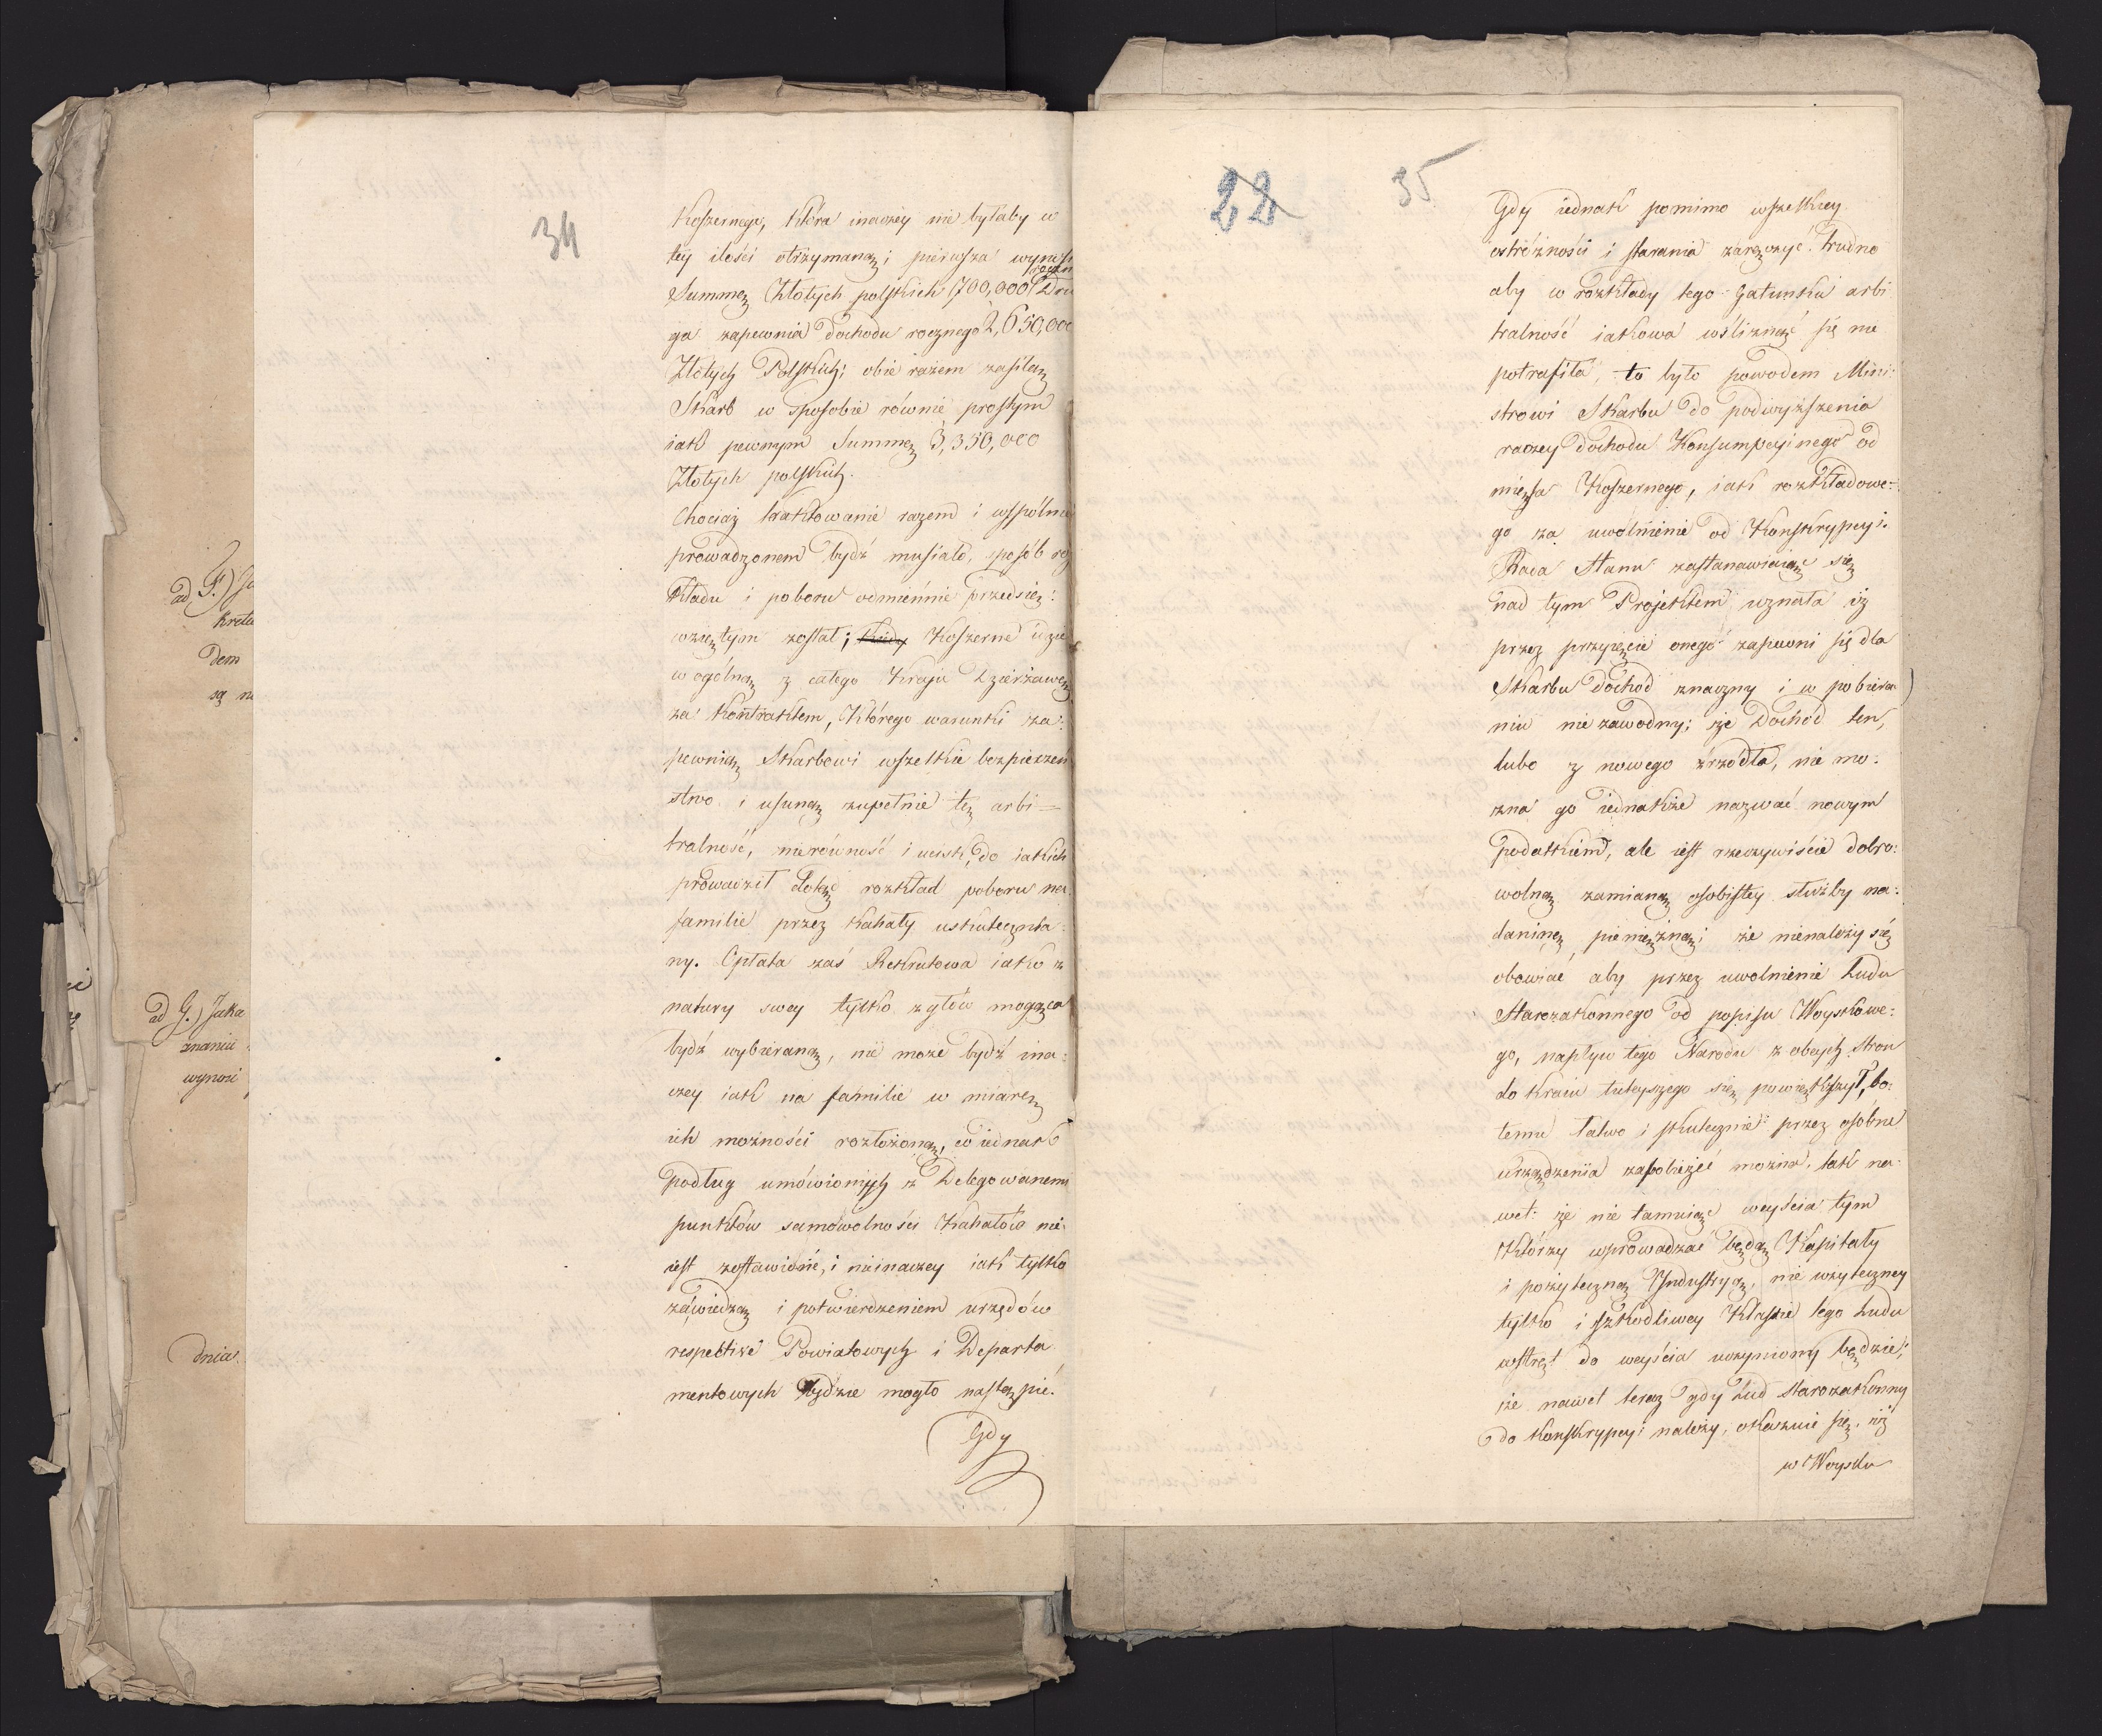 34
Koszernego, która inaczey nie byłaby w
tey ilości otrzymaną; pierwsza wynosi
roczn
Summę Złotych polskich 700,000 Dru
ga zapewnia dochodu rocznego 2,650,000
Złotych Polskich; obie razem zasilą
Skarb w sposobie równie prostym
iak pewnym Summę 3,350,000
Złotych polskich.
Chociaż traktowanie razem i wspólnie
prowadzonem bydź musiało, sposób roz
kładu i poboru odmiennie przedsię:
wziętym został; Koszerne idzie
w ogólną z całego Kraju Dzierżawę
za Kontraktem, którego warunki za:
pewnią Skarbowi wszelkie bezpieczeń
stwo i usuną zupełnie tę arbi=
tralność, nierówność i ucisk, do iakich
prowadził dotąd rozkład poboru na
familie przez Kahały uskutecznia:
ny. Opłata zaś Rekrutowa iako z
natury swey tylko z głów mogąca
bydź wybieraną, nie może bydź ina:
czey iak na familie w miarę
ich możności rozłożoną, co iednak
podług umówionych z Delegowanemi
punktów samowolności Kahałów nie
iest zostawione, i nieinaczey iak tylko
za wiedzą i potwierdzeniem urzędów
respective Powiatowych i Departa
mentowych będzie mogło nastąpić.
Gdy
ad F.)
kretu
dem
są
ad G.) Jaka
znaniu
wynosi
dnia
22
35
Gdy iednak pomimo wszelkiey
ostróżności i starania zaręczyć trudno
aby w rozkłady tego Gatunku arbi
tralność iakowa wśliznąć się nie
potrafiła, to było powodem Mini:
strowi Skarbu do podwyższenia
raczey dochodu Konsumpcyinego od
mięsa Koszernego, iak rozkładowe:
go za uwolnienie od Konskrypcyi.
Rada Stanu zastanawiaiąc się
nad tym Projektem uznała iż
przez przyięcie onego zapewni się dla
Skarbu dochod znaczny i w pobiera
niu niezawodny; że Dochód ten,
lubo z nowego źrzodła, nie mo:
żna go iednakże nazwać nowym
podatkiem, ale iest rzeczywiście dobro:
wolną zamianą osobistey służby na:
daninę pieniężną; że nienależy się
obawiać aby przez uwolnienie Ludu
Starozakonnego od popisu Woyskowe:
go, napływ tego Narodu z obcych stron
do kraiu tuteyszego się powiększył, bo:
temu łatwo i skutecznie przez osobne
urządzenia zapobieżeć można, tak na:
wet: że nie tamuiąc weyścia tym
którzy wprowadzać będą Kapitały
i pożyteczną Industryą, nie użyteczney
tylko i szkodliwey Klassie tego Ludu
wstręt do weyścia uczyniony będzie;
że nawet teraz gdy Lud Starozakonny
do Konskrypcyi należy, okazuie się, iż
w Woysku